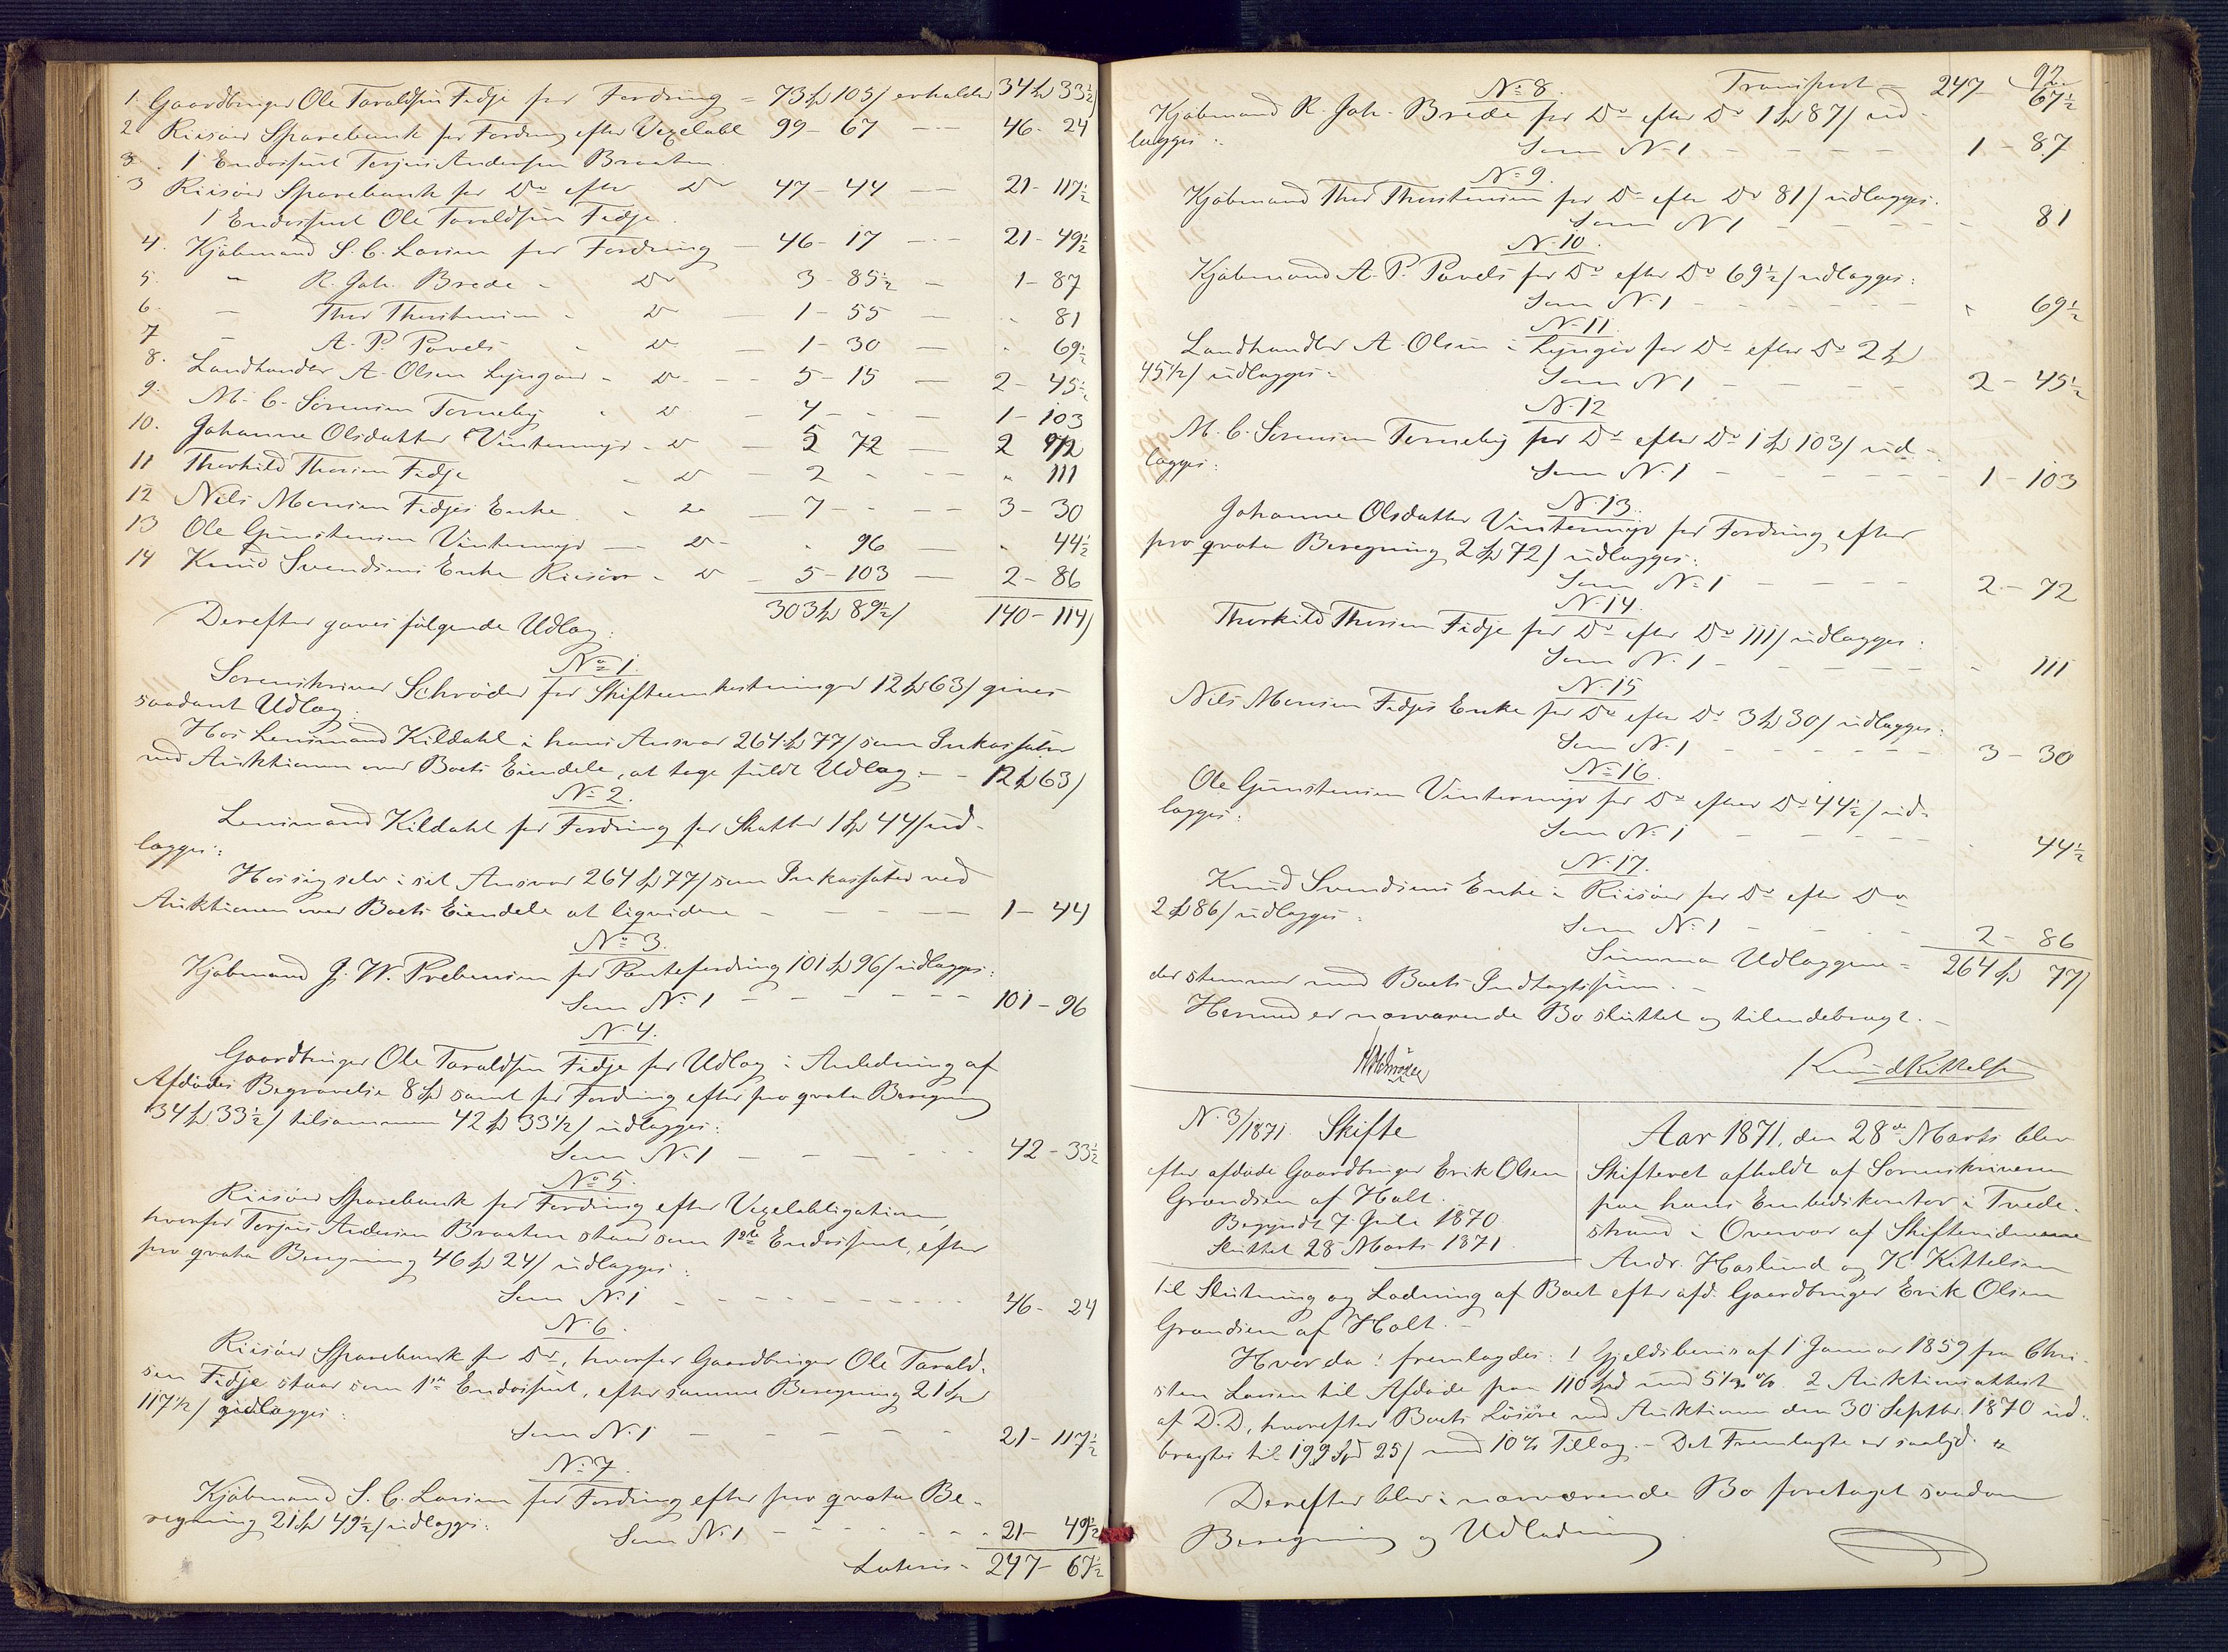 1. Gaardbruger Ole Taraldsen Fidje for Fordring = 73 Spd 103 s erholder 34 Spd 33½ s
2 Riisøers Sparebank for Fordring efter Vexelobl 99 - 67 - - - 46 - 24
1 Endossent Terjus Andersen Braaten
3 Riisøers Sparebank for Do efter Do 47 - 44 - - 21 - 117½
1 Endossent Ole Taraldsen Fidje.
4. Kjøbmand S. C. Larsen for Fordring - 46 - 17 - - - 21 - 49½
5. " R. Joh. Brede - Do 3 - 85½ - 1 - 87
6. - Thor Thorstensen - Do - 1 - 55 - " 81
7 - A. P. Povels - Do. - 1 - 30 - " 69½
8. Landhandler A. Olsen Lyngør - Do - - - 5 - 15 - 2 - 45½
9. M. C. Sørensen Torneby - Do - 4 - - - 1 - 103
10. Johanne Olsdatter Vintermyr - Do - 5 72 - 2 72
11 Thorkild Thorsen Fidje - Do - 2 - - - " 111
12 Nils Monsen Fidjes Enke - Do - 7 - - - 3 - 30
13 Ole Gunstensen Vintermyr - Do - " 96 - " 44½
14 Knud Svendsens Enke Riisøer - Do - 5 - 103 - 2 - 86
303 Spd 89½ s 140 - 114 s
Derefter gaves følgende Udlæg:
No 1.
Sorenskriver Schrøder for Skifteomkostninger 12 Spd 63 s gives
saadant Udlæg:
Hos Lensmand Kildahl i hans Ansvar 264 Spd 77 s som Inkassator
ved Auktionen over Boets Eiendele, at tage fuldt Udlæg - - 12 Spd 63 s
No 2.
Lensmand Kildahl for Fordring for Skatter 1 Spd 44 s ud-
lægges:
Hos sig selv i sit Ansvar 264 Spd 77 s som Inkassator ved
Auktionen over Boets Eiendele at liqvidere - - - - - - 1 - 44
No 3.
Kjøbmand J. W. Prebensen for Pantefordring 101 Spd 96 s udlægges:
Som No 1 - - - - - - - 101 - 96
No 4.
Gaardbruger Ole Taraldsen Fidje for Udlæg i Anledning af
Afdødes Begravelse 8 Spd samt for Fordring efter pro qvota Beregning
34 Spd 33½ s tilsammen 42 Spd 33½ s udlægges:
Som No 1 - - - - - - 42 - 33½
No 5.
Riisøers Sparebank for Fordring efter Vexelobligation,
hvorfor Terjus Andersen Braaten staar som 1ste Endossent, efter
pro qvota Beregning 46 Spd 24 s udlægges:
Som No 1 - - - - - - - - - 46 - 24
No 6.
Riisøers Sparebank for Do, hvorfor Gaardbruger Ole Tarald-
sen Fidje staar som 1ste Endossent, efter samme Beregning 21 Spd
117½ s udlægges:
Som No 1 - - - - - - 21 - 117½
No 7.
Kjøbmand S. C. Larsen for Fordring efter pro qvota Be-
regning 21 Spd 49½ s udlægges:
Som No 1 - - - - - - - 21 - 49½
Lateris - 247 - 67½
92
No 8. Transport - 247 - 67½
Kjøbmand R. Joh. Brede for Do efter Do 1 Spd 87 s ud-
lægges:
Som No 1 - - - - - 1 - 87
No 9.
Kjøbmand Thor Thorstensen for Do efter Do 81 s udlægges:
Som No 1 - - - - - " 81
No 10.
Kjøbmand A. P. Povels for Do efter Do 69½ s udlægges:
Som No 1 - - - - - - " 69½
No 11.
Landhandler A. Olsen i Lyngør for Do efter Do 2 Spd
45½ s udlægges:
Som No 1 - - - - - 2 - 45½
No 12
M. C. Sørensen Torneby for Do efter Do 1 Spd 103 s ud-
lægges:
Som No 1 - - - - - - 1 - 103
No 13.
Johanne Olsdatter Vintermyr for Fordring efter
pro qvota Beregning 2 Spd 72 s udlægges:
Som No 1 - - - - 2 - 72
No 14.
Thorkild Thorsen Fidje for Do efter Do 111 s udlægges:
Som No 1 - - - - - - " 111
No 15
Nils Monsen Fidjes Enke for Do efter Do 3 Spd 30 s udlægges:
Som No 1 - - - - - - 3 - 30
No 16.
Ole Gunstensen Vintermyr for Do efter Do 44½ s ud-
lægges:
Som No 1 - - - - " 44½
No 17.
Knud Svendsens Enke i Riisøer for Do efter Do
2 Spd 86 s udlægges:
Som No 1 - - - - 2 - 86
Summa Udlæggene = 264 Spd 77 s
der stemmer med Boets Indtægtssum. -
Hermed er nærværende Bo sluttet og tilendebragt. -
Schrøder Knud Kittelsen
No 3/1871. Skifte
efter afdøde Gaardbruger Erik Olsen
Grændsen af Holt.
Begyndt 7 Juli 1870.
Sluttet 28 Marts 1871.
Aar 1871, den 28de Marts blev
Skifteret afholdt af Sorenskriveren
paa hans Embedskontor i Tvede-
strand i Overvær af Skiftevidnerne
Andr. Haslund og K. Kittelsen
til Slutning og Lodning af Boet efter afd. Gaardbruger Erik Olsen
Grændsen af Holt. -
Hvor da: fremlagdes: 1 Gjeldsbevis af 1 Januar 1859 fra Chri-
sten Larsen til Afdøde paa 110 Spd med 5 % 2 Auktionsattest
af D.D., hvorefter Boets Løsøre ved Auktionen den 30 Septbr. 1870 ud-
bragtes til 199 Spd 25 s med 10 % Tillæg. - Det Fremlagte er saalyd.
Derefter blev i nærværende Bo foretaget saadan
Beregning og Udlodning